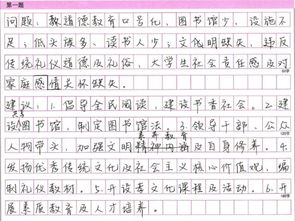 第一题
问题：教道德教育口号化，图书馆少，设施不
足；低头族多、读书人少；文化明缺失，违反
传统美德及礼俗，大学生社会责任感及对
家庭感情关怀缺失。
建议：1.倡导全民阅读，建设书香社会。2.建
共享
设图书馆，制定图书馆法。3.领导干部、公众
素养教育
人物带头，加强文明精神内涵及自身修养。4.
发扬优秀传统文化及社会主义核心价值观，编
制礼仪教材。5.开设孝文化课程及活动。6.开
展素质教育及人才培养。